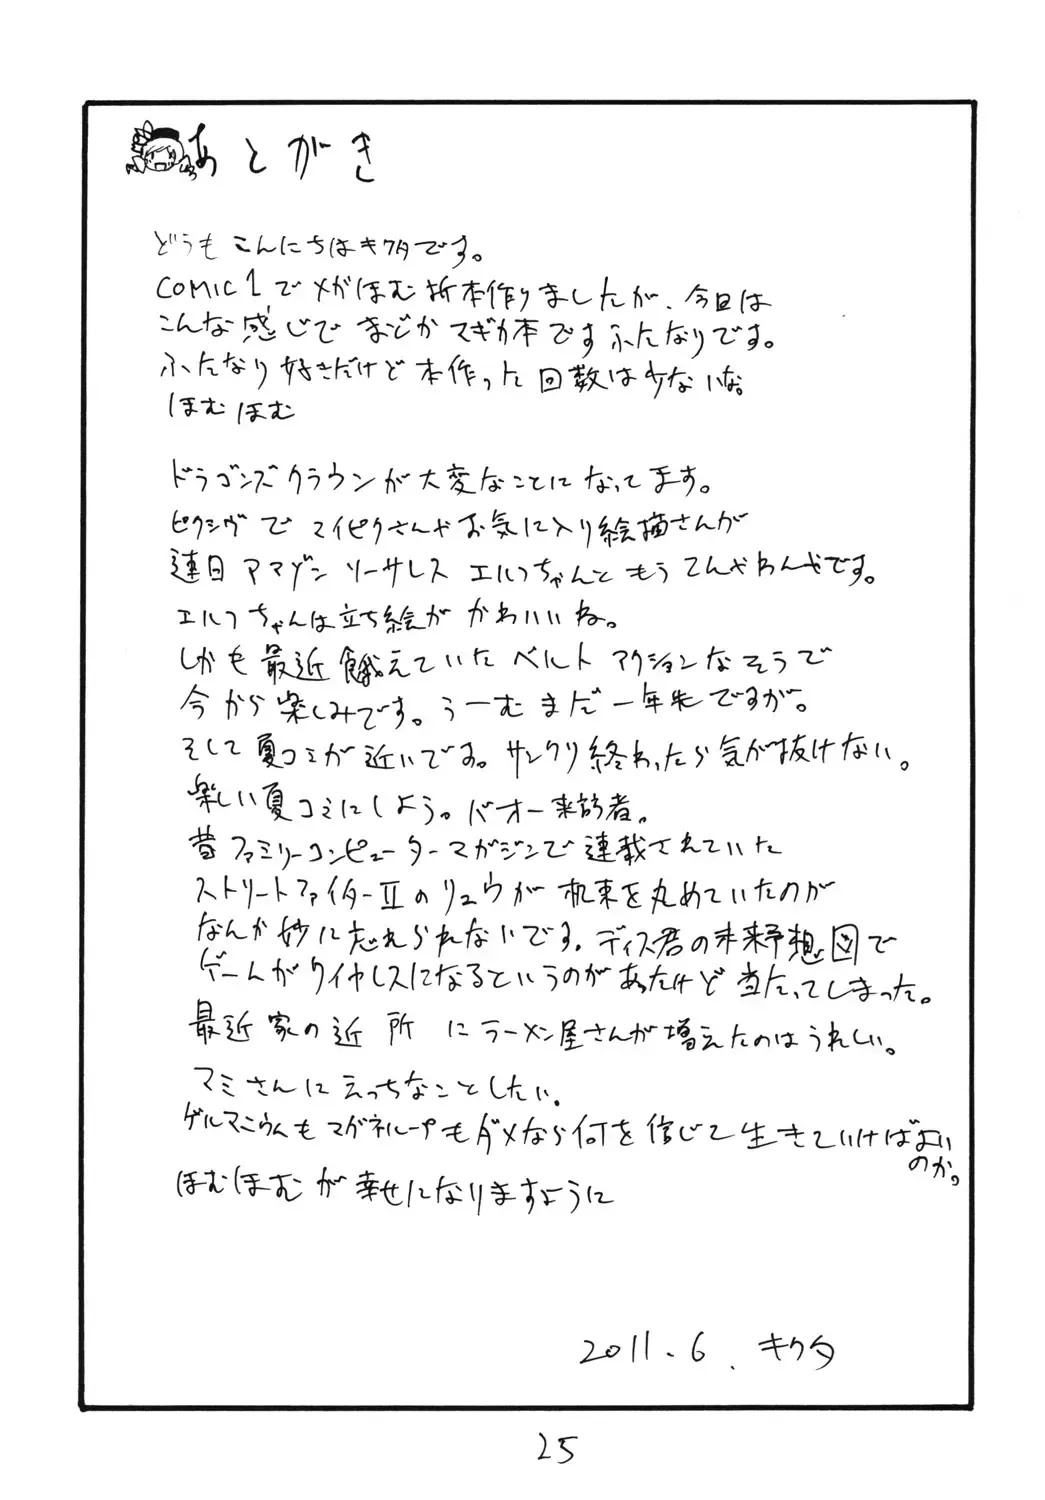 あとがき
どうも こんにちはキクタです。
COMIC1でメガほむ折本作りましたが、今回は
こんな感じで まどか マギカ本です ふたなりです。
ふたなり好きだけど 本作った回数は少ないな。
ほむほむ
ドラゴンズクラウンが大変なことになってます。
ピクシヴで マイピクさんやお気に入り絵描さんが
連日 アマゾン ソーサレス エルフちゃんと もう てんやわんやです。
エルフちゃんは立ち絵が かわいいね。
しかも 最近 餓えていた ベルト アクションなそうで
今から楽しみです。うーむ まだ 一年先ですが。
そして 夏コミが近いです。サンクリ終わったら気が抜けない。
楽しい夏コミにしよう。バオー来訪者。
昔 ファミリーコンピューターマガジンで連載されていた
ストリートファイターⅡのリュウが 札束を丸めていたのが
なんか妙に忘れられないです。ディス君の未来予想図で
ゲームがワイヤレスになるというのがあったけど 当たってしまった。
最近家の近所にラーメン屋さんが増えたのはうれしい。
マミさんにえっちなことしたい。
ゲルマニウムもマグネループもダメなら何を信じて生きていけばよい
のか。
ほむほむが幸せになりますように
2011.6. キクタ
25